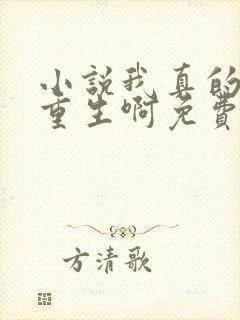 小説我真的
重生啊免費
方清歌